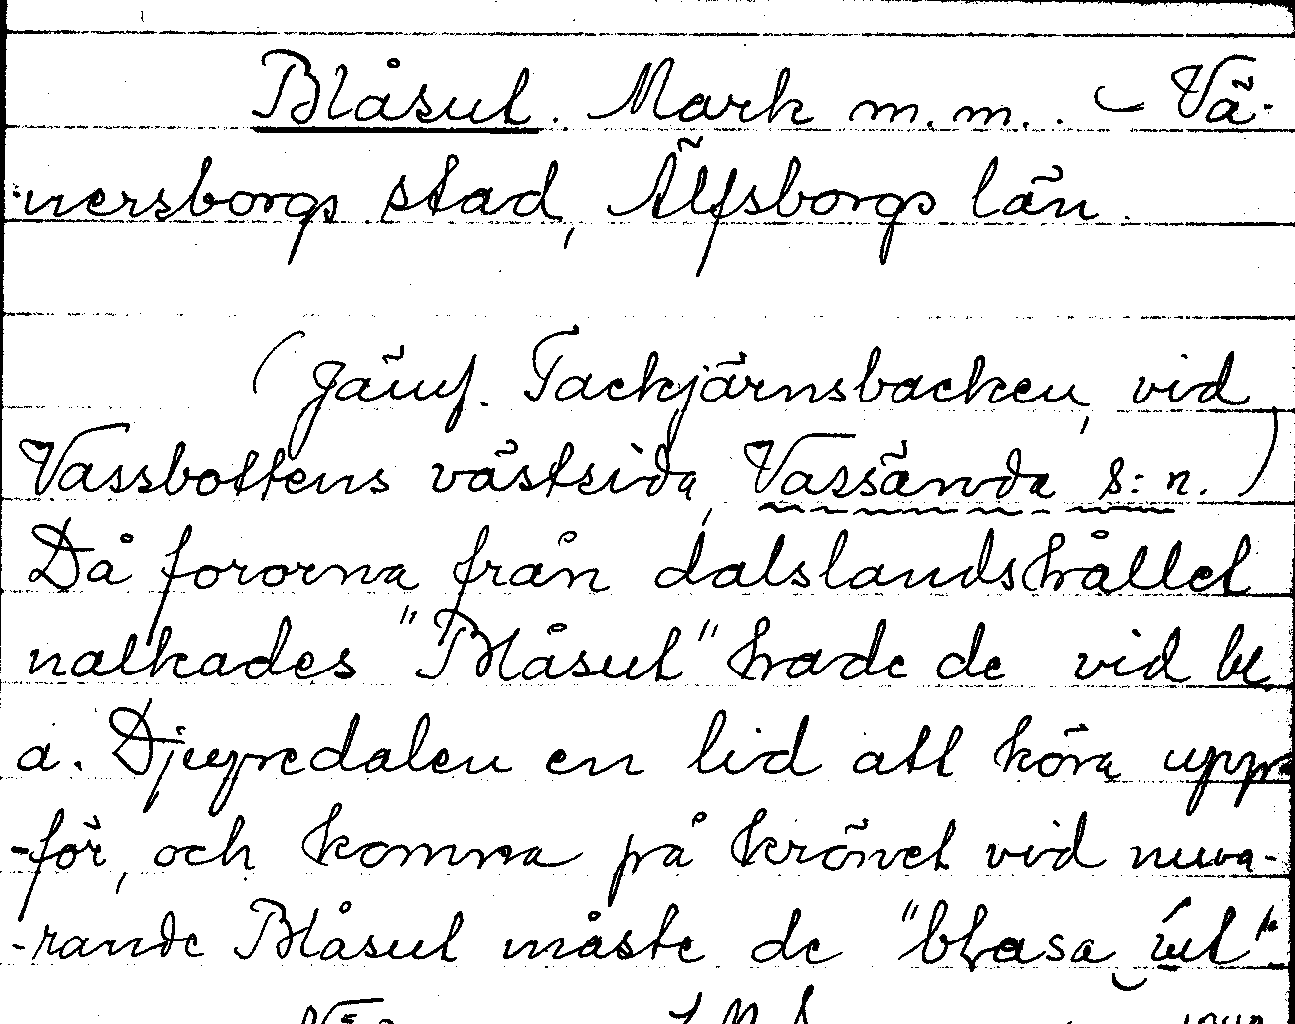 Blåsut. Mark m.m. . — Vä-
-nersborgs stad, Älfsborgs län.
(Jämf. Tackjärnsbacken, vid
Vassbottens västsida, Vassända s:n.)
Då fororna från dalslandshållet
nalkades "Blåsut" hade de vid bl
a. Djupedalen en lid att köra uppe
-för, och komna på krönet vid nuva-
-rande Blåsut måste de "blåsa ut".